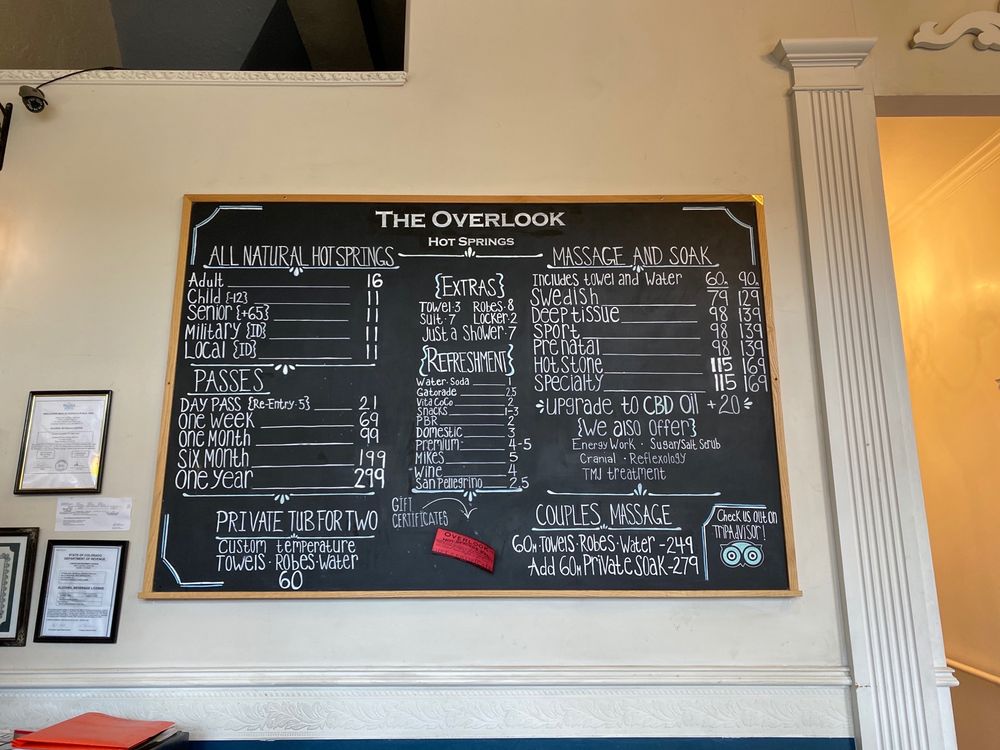 THE OVERLOOK
HOT SPRINGS
ALL NATURAL HOT SPRINGS
Adult 16
Child {-12} 11
Senior {+65} 11
Military {ID} 11
Local {ID} 11
PASSES
DAY PASS {Re-Entry·5} 21
One Week 69
One Month 99
Six Month 199
One Year 299
PRIVATE TUB FOR TWO
Custom temperature
Towels·Robes·Water
60
{EXTRAS}
Towel·3 Robes·8
Suit·7 Locker·2
Just a Shower·7
{REFRESHMENT}
Water·Soda 1
Gatorade 2.5
Vita CoCo 2
Snacks 1-3
PBR 2
Domestic 3
Premium 4-5
Mikes 5
Wine 4
San Pellegrino 2.5
GIFT
CERTIFICATES
OVERLOOK
MASSAGE AND SOAK
Includes towel and Water 60m 90m
Swedish 79 129
Deep tissue 98 139
Sport 98 139
Prenatal 98 139
Hot Stone 115 169
Specialty 115 169
upgrade to CBD Oil +20
{We also offer}
Energy Work · Sugar/Salt Scrub
Cranial · Reflexology
TMJ treatment
COUPLES MASSAGE
60m·Towels·Robes·Water -249
Add 60m Private Soak-279
Check us out on
TripAdvisor!
STATE OF COLORADO
DEPARTMENT OF REVENUE